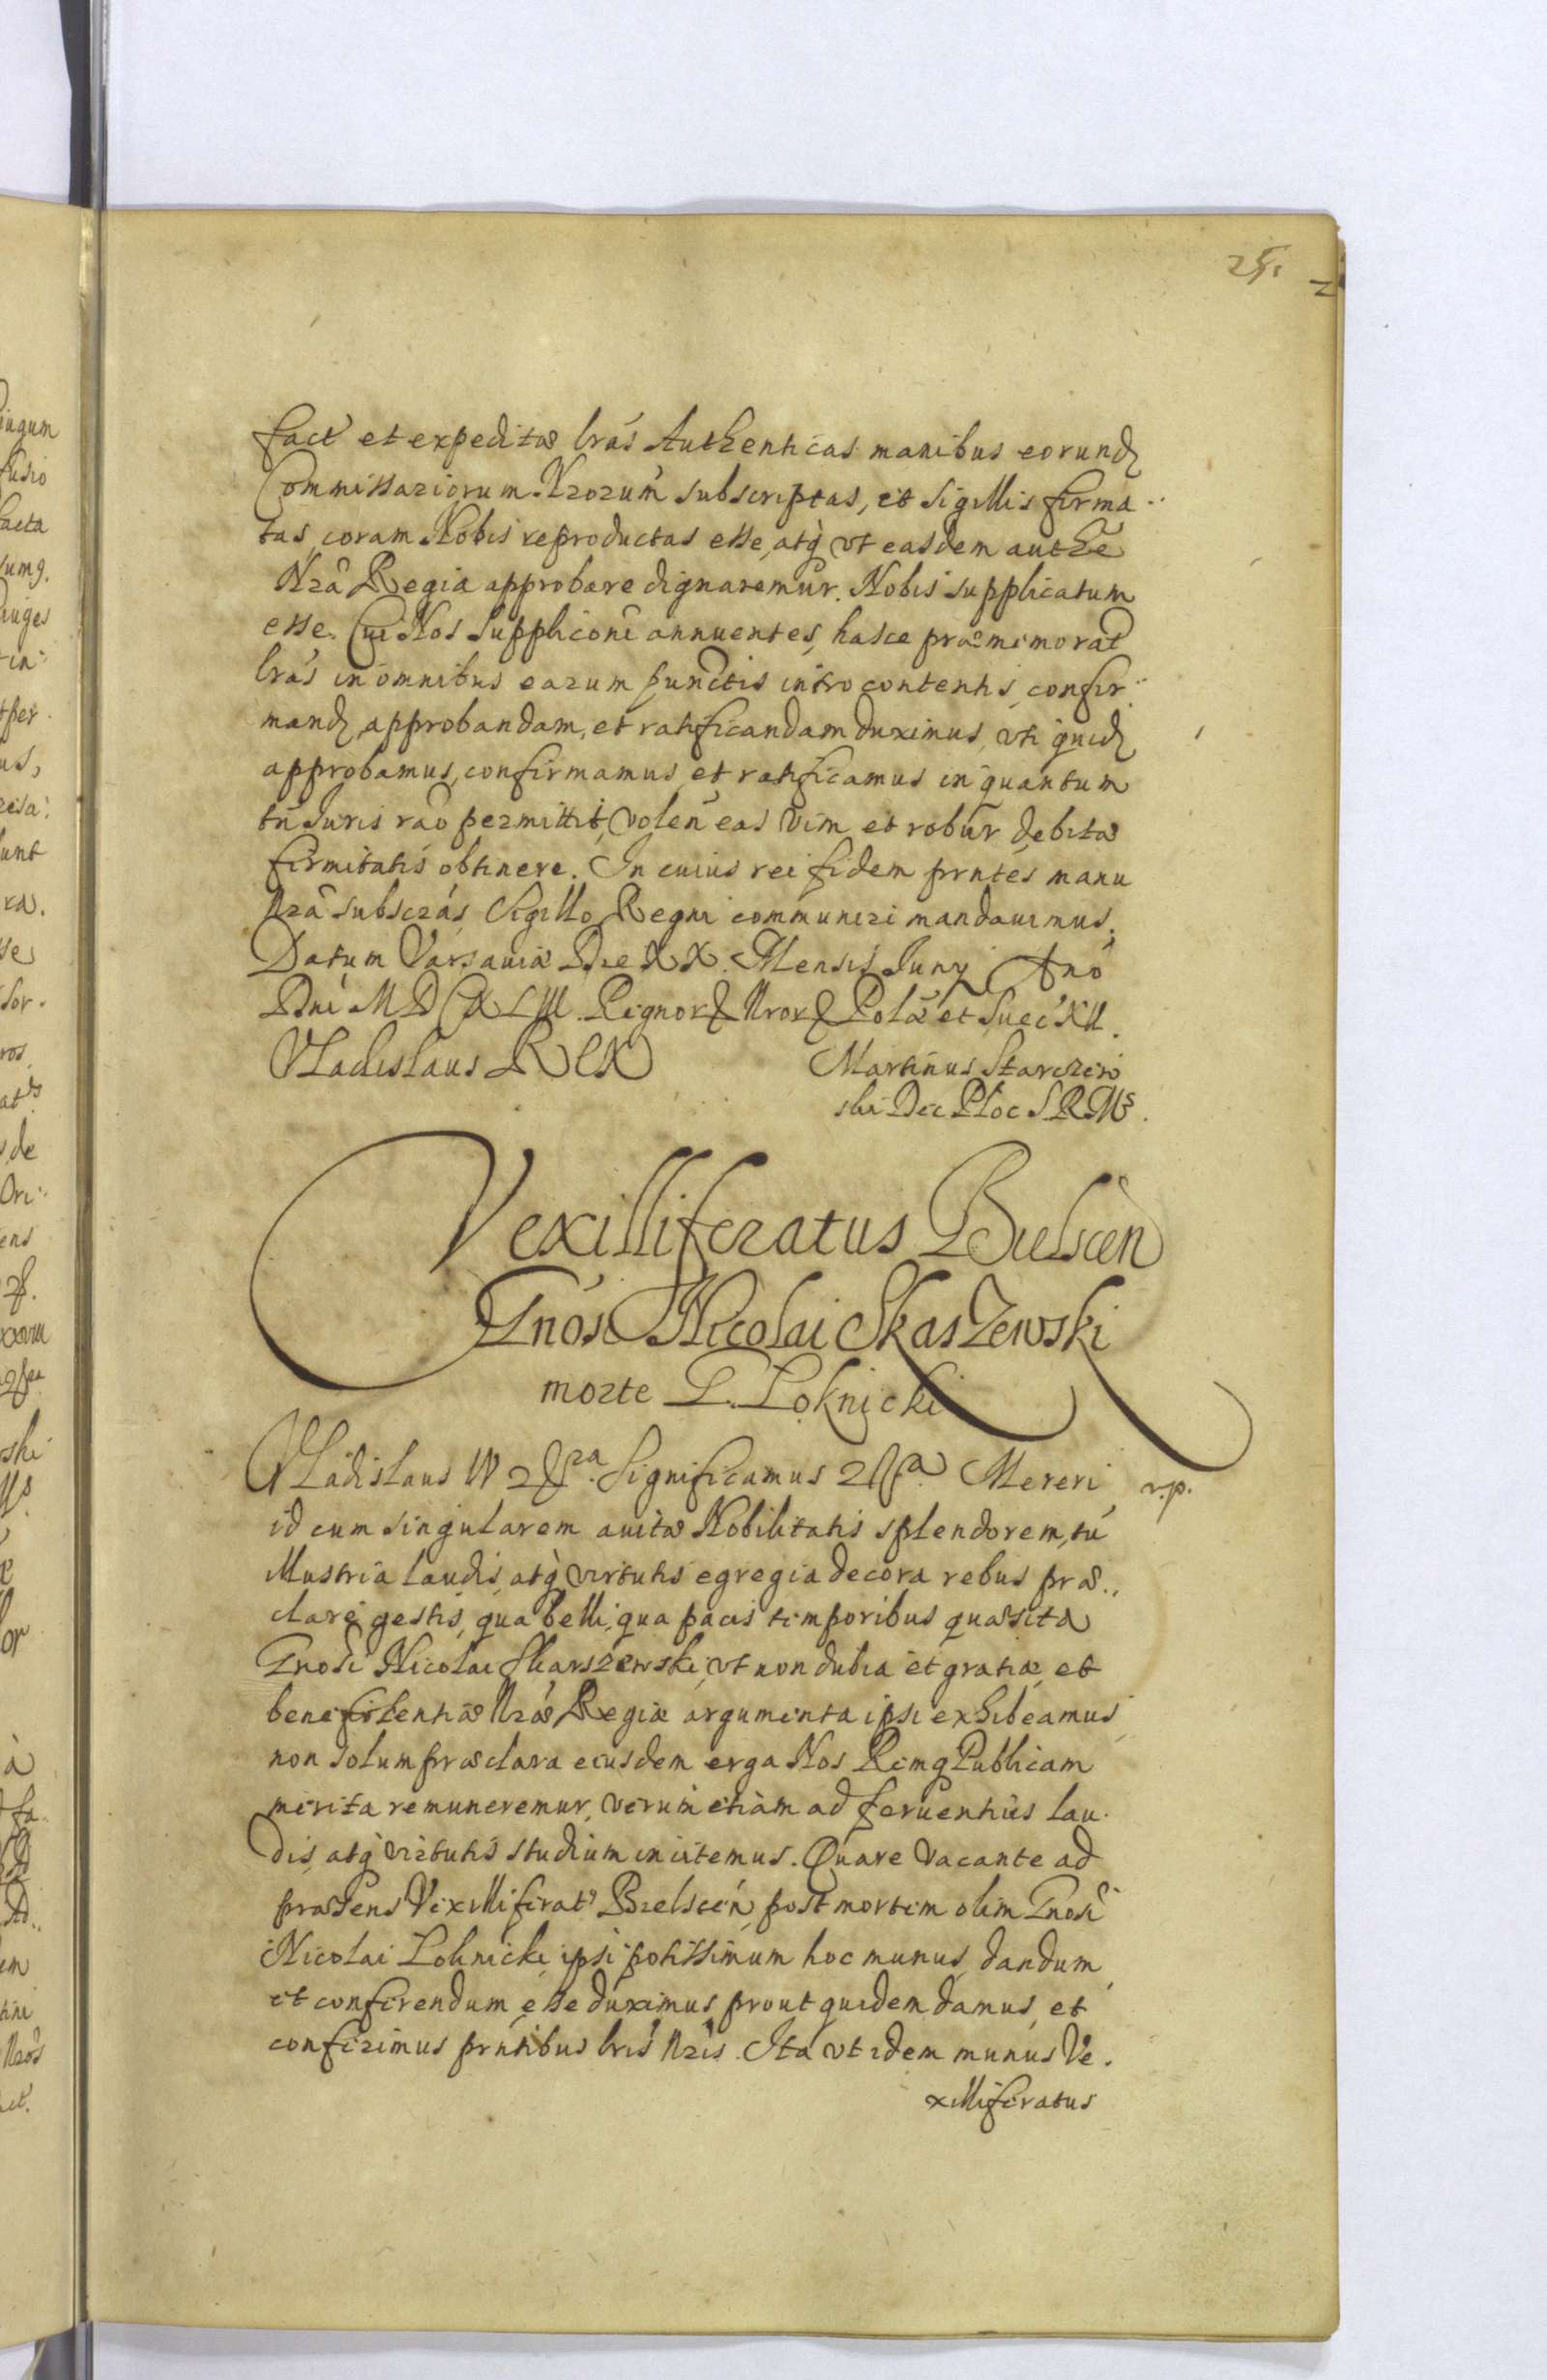 251
fact et expeditæ lrás Authenticas manibus eorund
Commissariorum Nrorum subscriptas, et sigillis firma-
tas, coram Nobis reproductas esse, atq vt easdem authe
Nrâ Regia approbare dignaremur. Nobis supplicatum
esse. Cui Nos Supplicōni annuentes, hasce præmemorat
lrás in omnibus earum punctis intro contentis, confir-
mand, approbandam, et ratificandam duximus, vti quid
approbamus, confirmamus et ratificamus in quantum
tn̄ Juris raō permittit, volen̄ eas vim et robur debitæ
firmitatis obtinere. In cuius rei fidem prntes manu
Nrâ subscrás, Sigillo Regni communiri mandauimus.
Datum Varsauiæ Die XX. Mensis Juny Anō
Dni MDCXLIII. Regnor Nror Polæ et Suec XII.
Vladislaus REX
Martinus Starczew
ski Dec Ploc S R Ms.
Vexilliferatus Bielscen
Gnósi Nicolai Skaszewski
morte G. Loknicki
Vladislaus IV Significamus Mereri
r.p.
id cum singularem auitæ Nobilitatis splendorem, tú
illustria laudis, atq virtutis egregia decora rebus præ-
claré gestis, qua belli, qua pacis temporibus quæsita
Gnosi Nicolai Skarszewski, vt non dubia et gratiæ, et
beneficentiæ Nræ Regiæ argumenta ipsi exhibeamus
non solum præclara eiusdem erga Nos Remq Publicam
merita remuneremur, verum etiam ad feruentius lau-
dis, atq virtutis studium incitemus. Quare vacante ad
præsens Vexilliferatu Bielscen, post mortem olim Gnosi
Nicolai Loknicki, ipsi potissimum hoc munus, dandum
et conferendum esse duximus, prout quidem damus, et
conferimus prntibus lris Nris. Ita vt idem munus Ve-
xilliferatus